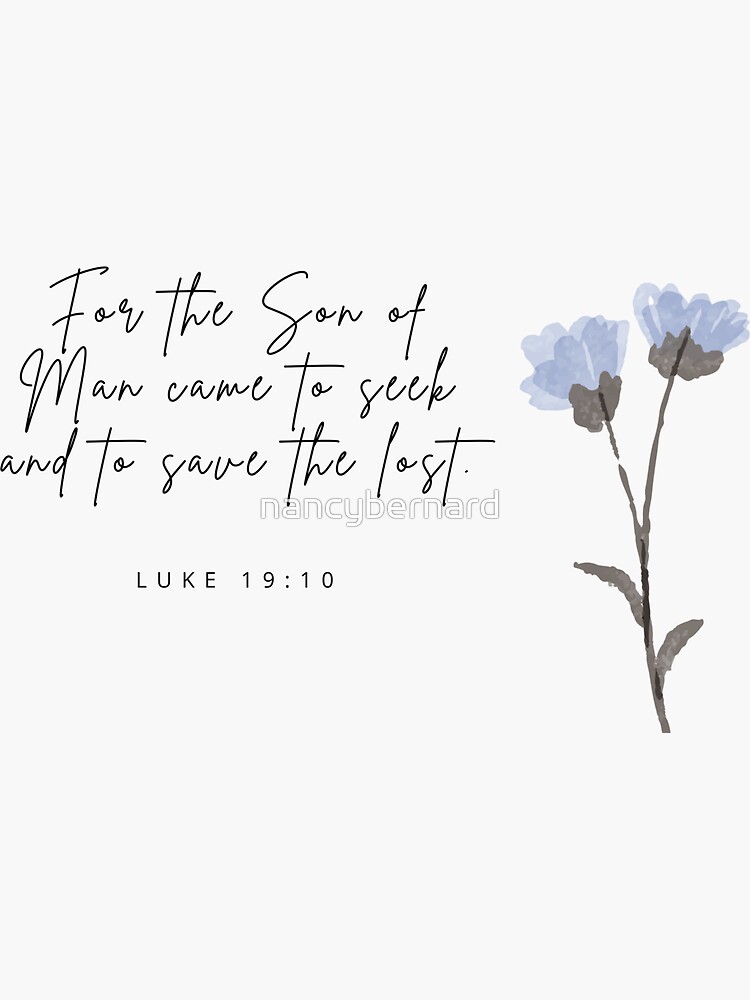 For the Son of
Man came to seek
and to save the lost.
nancybernard
LUKE 19:10